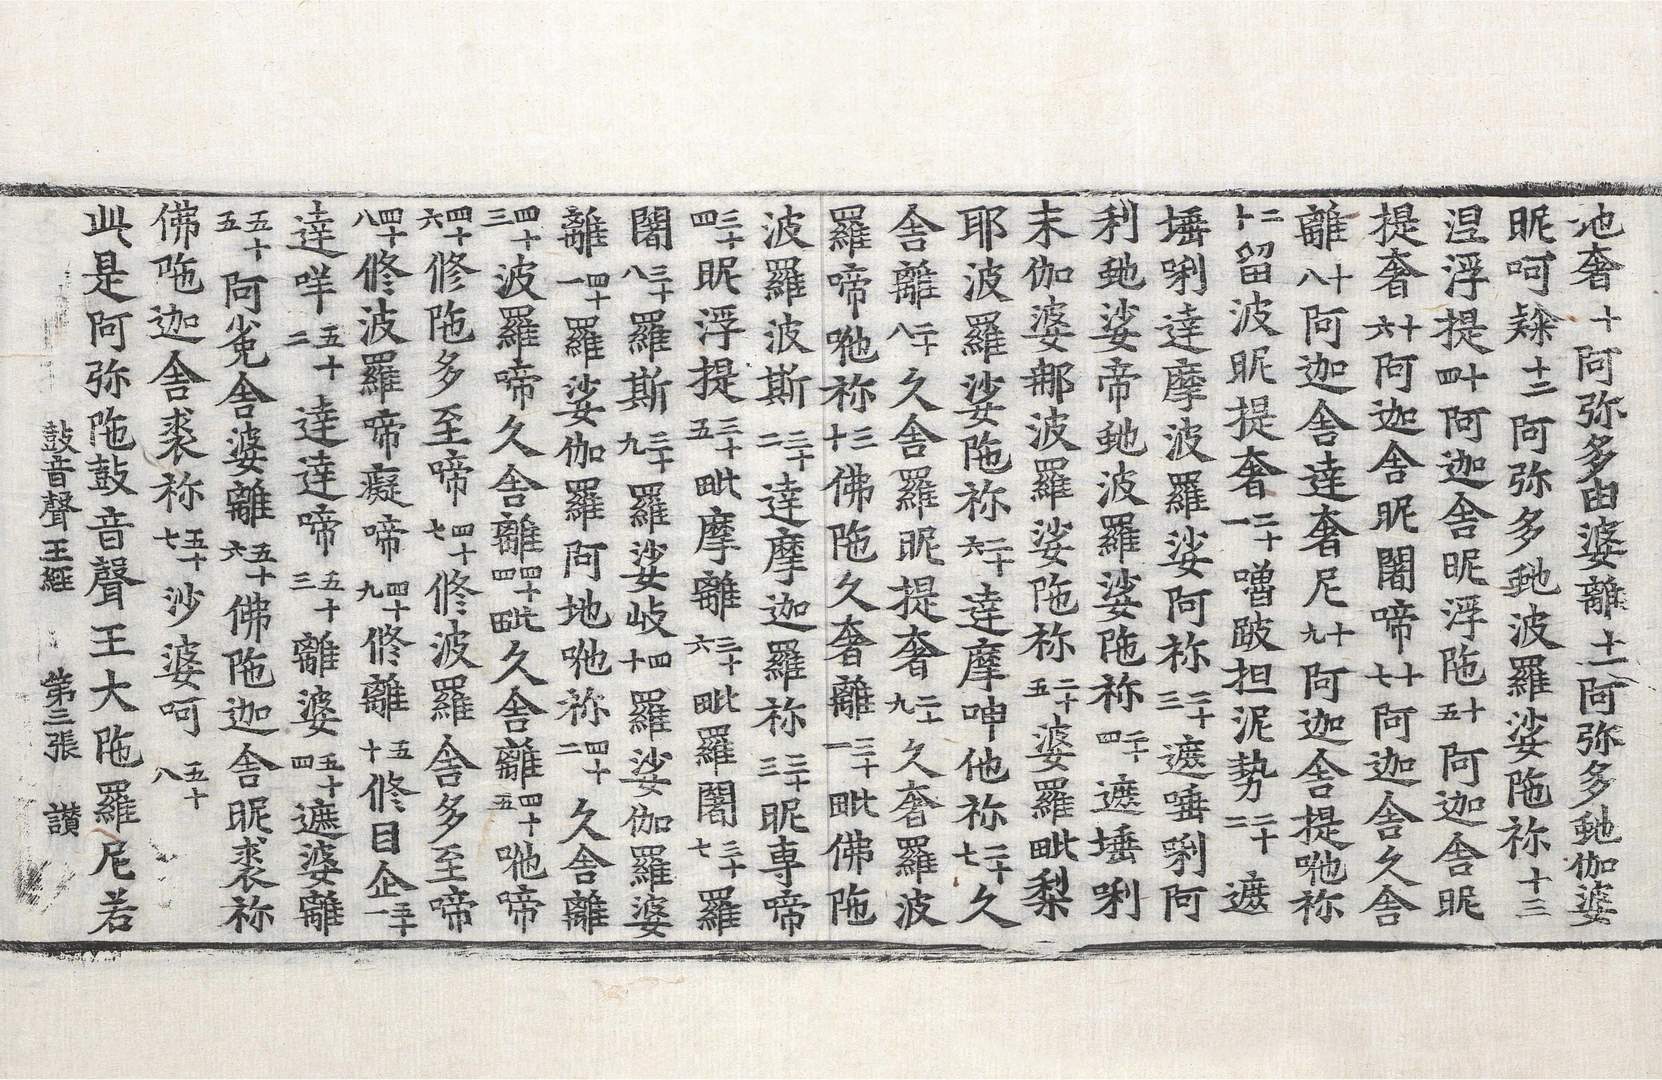 池奢十阿弥多由婆離十一阿弥多虵伽婆
昵呵䟽十二阿弥多虵波羅娑陁祢十三
涅浮提十四阿迦舍昵浮陁十五阿迦舍昵
提奢十六阿迦舍昵闍啼十七阿迦舍久舍
離十八阿迦舍達奢尼十九阿迦舍提㖿祢
二十留波昵提奢二十一嚕跛担泥㔟二十二遮
埵唎達摩波羅娑阿祢二十三遮埵唎阿
利虵娑帝虵波羅娑陁祢二十四遮埵唎
末伽婆那波羅娑陁祢二十五婆羅毗梨
耶波羅娑陁祢二十六達摩呻他祢二十七久
舍離二十八久舍羅昵提奢二十九久奢羅波
羅啼㖿祢三十佛陁久奢離三十一毗佛陁
波羅波斯三十二達摩迦羅祢三十三昵専啼
三十四昵浮提三十五毗摩離三十六毗羅闍三十七羅
闍三十八羅斯三十九羅娑岐四十羅娑伽羅婆
離四十一羅娑伽羅阿地㖿祢四十二久舍離
四十三波羅啼久舍離四十四毗久舍離四十五㖿啼
四十六修陁多至啼四十七修波羅舍多至啼
四十八修波羅啼癡啼四十九修離五十修目企五十一
達咩五十二達達啼五十三離婆五十四遮婆離
五十五阿㝹舍婆離五十六佛陁迦舍昵裘祢
佛陁迦舍裘祢五十七沙婆呵五十八
此是阿弥陁鼓音聲王大陁羅尼若
鼓音聲王經 第三張 讃